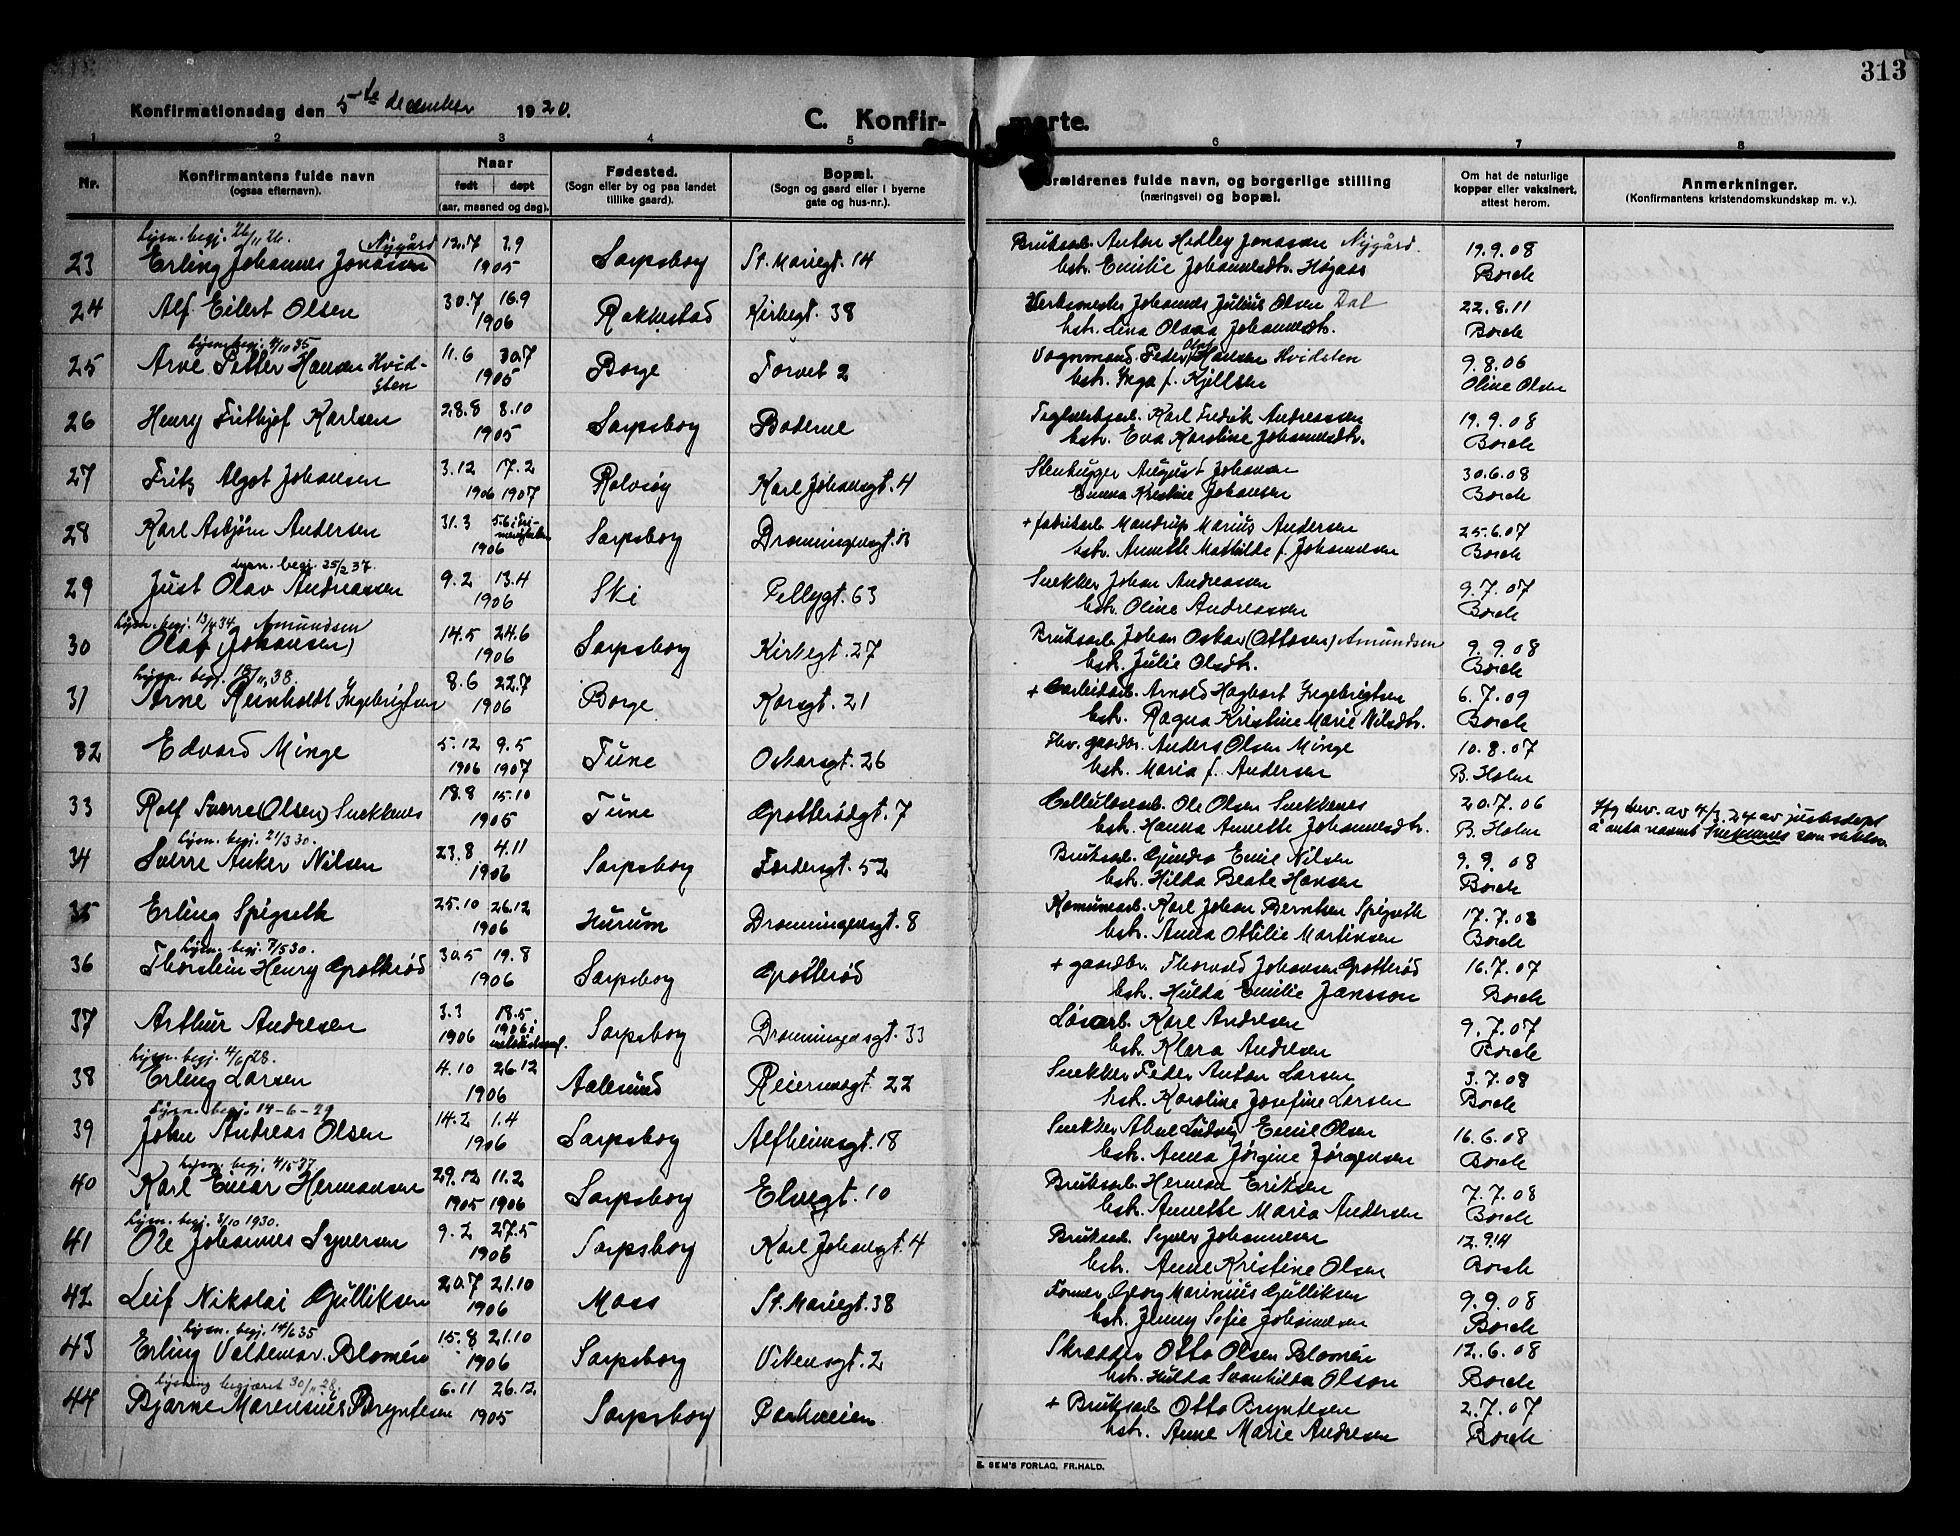 313
Konfirmationsdag den 5te december 1920.
C. Konfir- merte.
1 2 3 4 5 6 7 8
Nr. Konfirmantens fulde navn (ogsaa efternavn). Naar født døpt (aar, maaned og dag). Fødested. (Sogn eller by og paa landet tillike gaard). Bopæl. (Sogn og gaard eller i byerne gate og hus-nr.). Forældrenes fulde navn, og borgerlige stilling (næringsvei) og bopæl. Om hat de naturlige kopper eller vaksinert, attest herom. Anmerkninger. (Konfirmantens kristendomskundskap m. v.).
Lysn. begj. 26/11 26. (Nygård
23 Erling Johannes Jonassen 12.7 3.9 Sarpsborg St. Mariegt. 14 Bruksarb. Anton Hedley Jonassen Nygård. 19.9.08
1905 hstr. Emilie Johannesdtr. Høgaas Borch
24 Alf Eilert Olsen 30.7 16.9 Rakkestad Kirkegt. 38 Verksmester Johannes Julius Olsen Dal 22.8.11
1906 hstr. Lina Olava Johannesdtr. Borch
Lysn. begj. 4/10 35
25 Arne Petter Hansen Hvid- 11.6 30.7 Borge Torvet 2 Vognmand Peder Olaf Hansen Hvidsten 9.8.06
sten 1905 hstr. Inga f. Kjellsen Oline Olsen
26 Henry Frithjof Karlsen 28.8 8.10 Sarpsborg Boderne Teglverksarb. Karl Fredrik Andreassen 19.9.08
1905 hstr. Eva Karoline Johannesdtr. Borch
27 Fritz Algot Johansen 3.12 17.2 Rolvsøy Karl Johansgt. 4 Stenhugger August Johansen 30.6.08
1906 1907 Emma Kristine Johansen Borch
28 Karl Asbjørn Andersen 31.3 5.6 i Fri- Sarpsborg Dronningensgt. 13 + fabrikarb. Mandrup Marius Andersen 25.6.07
menigheten 1906 hstr. Annette Mathilde f. Johannesen Borch
Lysn. begj. 25/2 37.
29 Just Olav Andreassen 9.2 13.4 Ski Pellygt. 63 Snekker Johan Andreassen 9.7.07
1906 hstr. Oline Andreassen Borch
Lysn. begj. 13/4 34 Amundsen
30 Olaf (Johansen) 14.5 24.6 Sarpsborg Kirkegt. 27 Bruksarb. Johan Oskar (Ottosen) Amundsen 9.9.08
1906 hstr. Julie Olsdtr. Borch
Lysn. begj. 18/11 38.
31 Arne Reinholdt Ingebrigtsen 8.6 22.7 Borge Korsgt. 21 + Arnold Hagbart Ingebrigtsen 6.7.09
1906 hstr. Ragna Kristine Marie Nilsdtr. Borch
32 Edvard Minge 5.12 9.5 Tune Oskarsgt. 26 Fhv. gaardbr. Anders Olsen Minge 10.8.07
1906 1907 hstr. Maria f. Andersen B. Holm
33 Rolf Sverre (Olsen) Snekkenes 18.8 15.10 Tune Grotterødgt. 7 Cellulosearb. Ole Olsen Snekkenes 20.7.06 Ifg bev. av 4/3.24 av justisdept
1905 hstr. Hanna Annette Johannesdtr. B. Holm å anta navnet Snekkenes som slektsn.
Lysn. begj. 21/3 30.
34 Sverre Anker Nilsen 23.8 4.11 Sarpsborg Færdersgt. 52 Bruksarb. Gundro Emil Nilsen 9.9.08
1906 hstr. Hilda Beate Hansen Borch
35 Erling Spigseth 25.10 26.12 Hurum Dronningensgt. 8 Komunearb. Karl Johan Berntsen Spigseth 17.7.08
1906 hstr. Anna Ottilie Martinsen Borch
Lysn. begj. 7/5 30.
36 Thorstein Henry Grotterød 30.5 19.8 Sarpsborg Grotterød + gaardbr. Thorvald Johansen Grotterød 16.7.07
1906 hstr. Hulda Emilie Jansson Borch
37 Arthur Andresen 3.3 18.5 Sarpsborg Dronningensgt. 33 Løsarb. Karl Andresen 9.7.07
1906 1906 i metodistmenf. hstr. Klara Andresen Borch
Lysn. begj. 4/6 28.
38 Erling Larsen 4.10 26.12 Aalesund Reiersensgt 22 Snekker Peder Anton Larsen 3.7.08
1906 hstr. Karoline Josefine Larsen Borch
Lysn. begj. 14-6-29
39 John Andreas Olsen 14.2 1.4 Sarpsborg Alfheimsgt. 18 Snekker Abel Ludvig Emil Olsen 16.6.08
1906 hstr. Anna Jørgine Jørgensen Borch
Lysn. begj. 4/5 37
40 Karl Einar Hermansen 29.12 11.2 Sarpsborg Elvegt. 10 Bruksarb. Herman Eriksen 7.7.08
1905 1906 hstr. Annette Maria Andersen Borch
Lysn. begj. 8/10 1930.
41 Ole Johannes Syversen 9.2 27.5 Sarpsborg Karl Johansgt. 4 Bruksarb. Syver Johannesen 12.9.14
1906 hstr. Anne Kristine Olsen Borch
42 Leif Nikolai Gulliksen 20.7 21.10 Moss St. Mariegt. 38 Former Georg Marinius Gulliksen 9.9.08
1906 hstr. Jenny Sofie Johannesen Borch
Lysn. begj. 14/6 35
43 Erling Valdemar Blomén 15.8 21.10 Sarpsborg Vikensgt. 2 Skrædder Otto Olsen Blomén 12.6.08
1906 hstr. Hulda Svanhilda Olson Borch
Lysning begjæret 30/11 28.
44 Bjarne Marensius Bryntesen 6.11 26.12 Sarpsborg Parkveien + Bruksarb. Otto Bryntesen 2.7.07
1905 hstr. Anne Marie Andresen Borch
E. SEM'S FORLAG, FR.HALD.